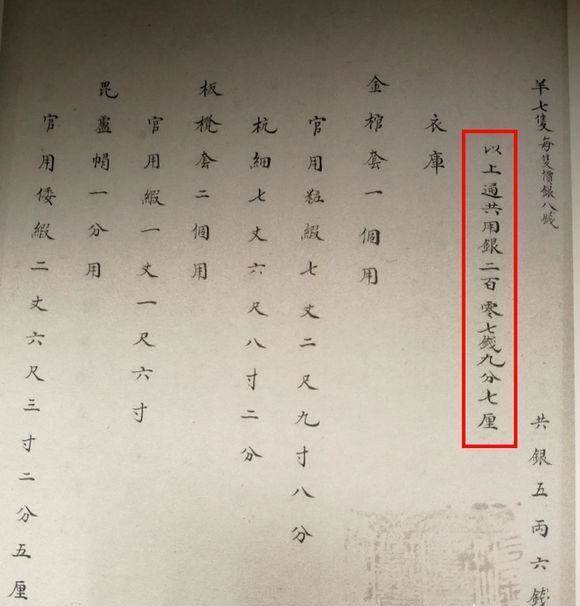 羊七隻每隻價銀八錢　共銀五両六錢
以上通共用銀二百零七錢九分七厘
衣庫
金棺套一個用
官用粧緞七丈二尺九寸八分
杭細七丈六尺八寸二分
板櫈套二個用
官用緞一丈一尺六寸
毘盧帽一分用
官用倭緞二丈六尺三寸二分五厘